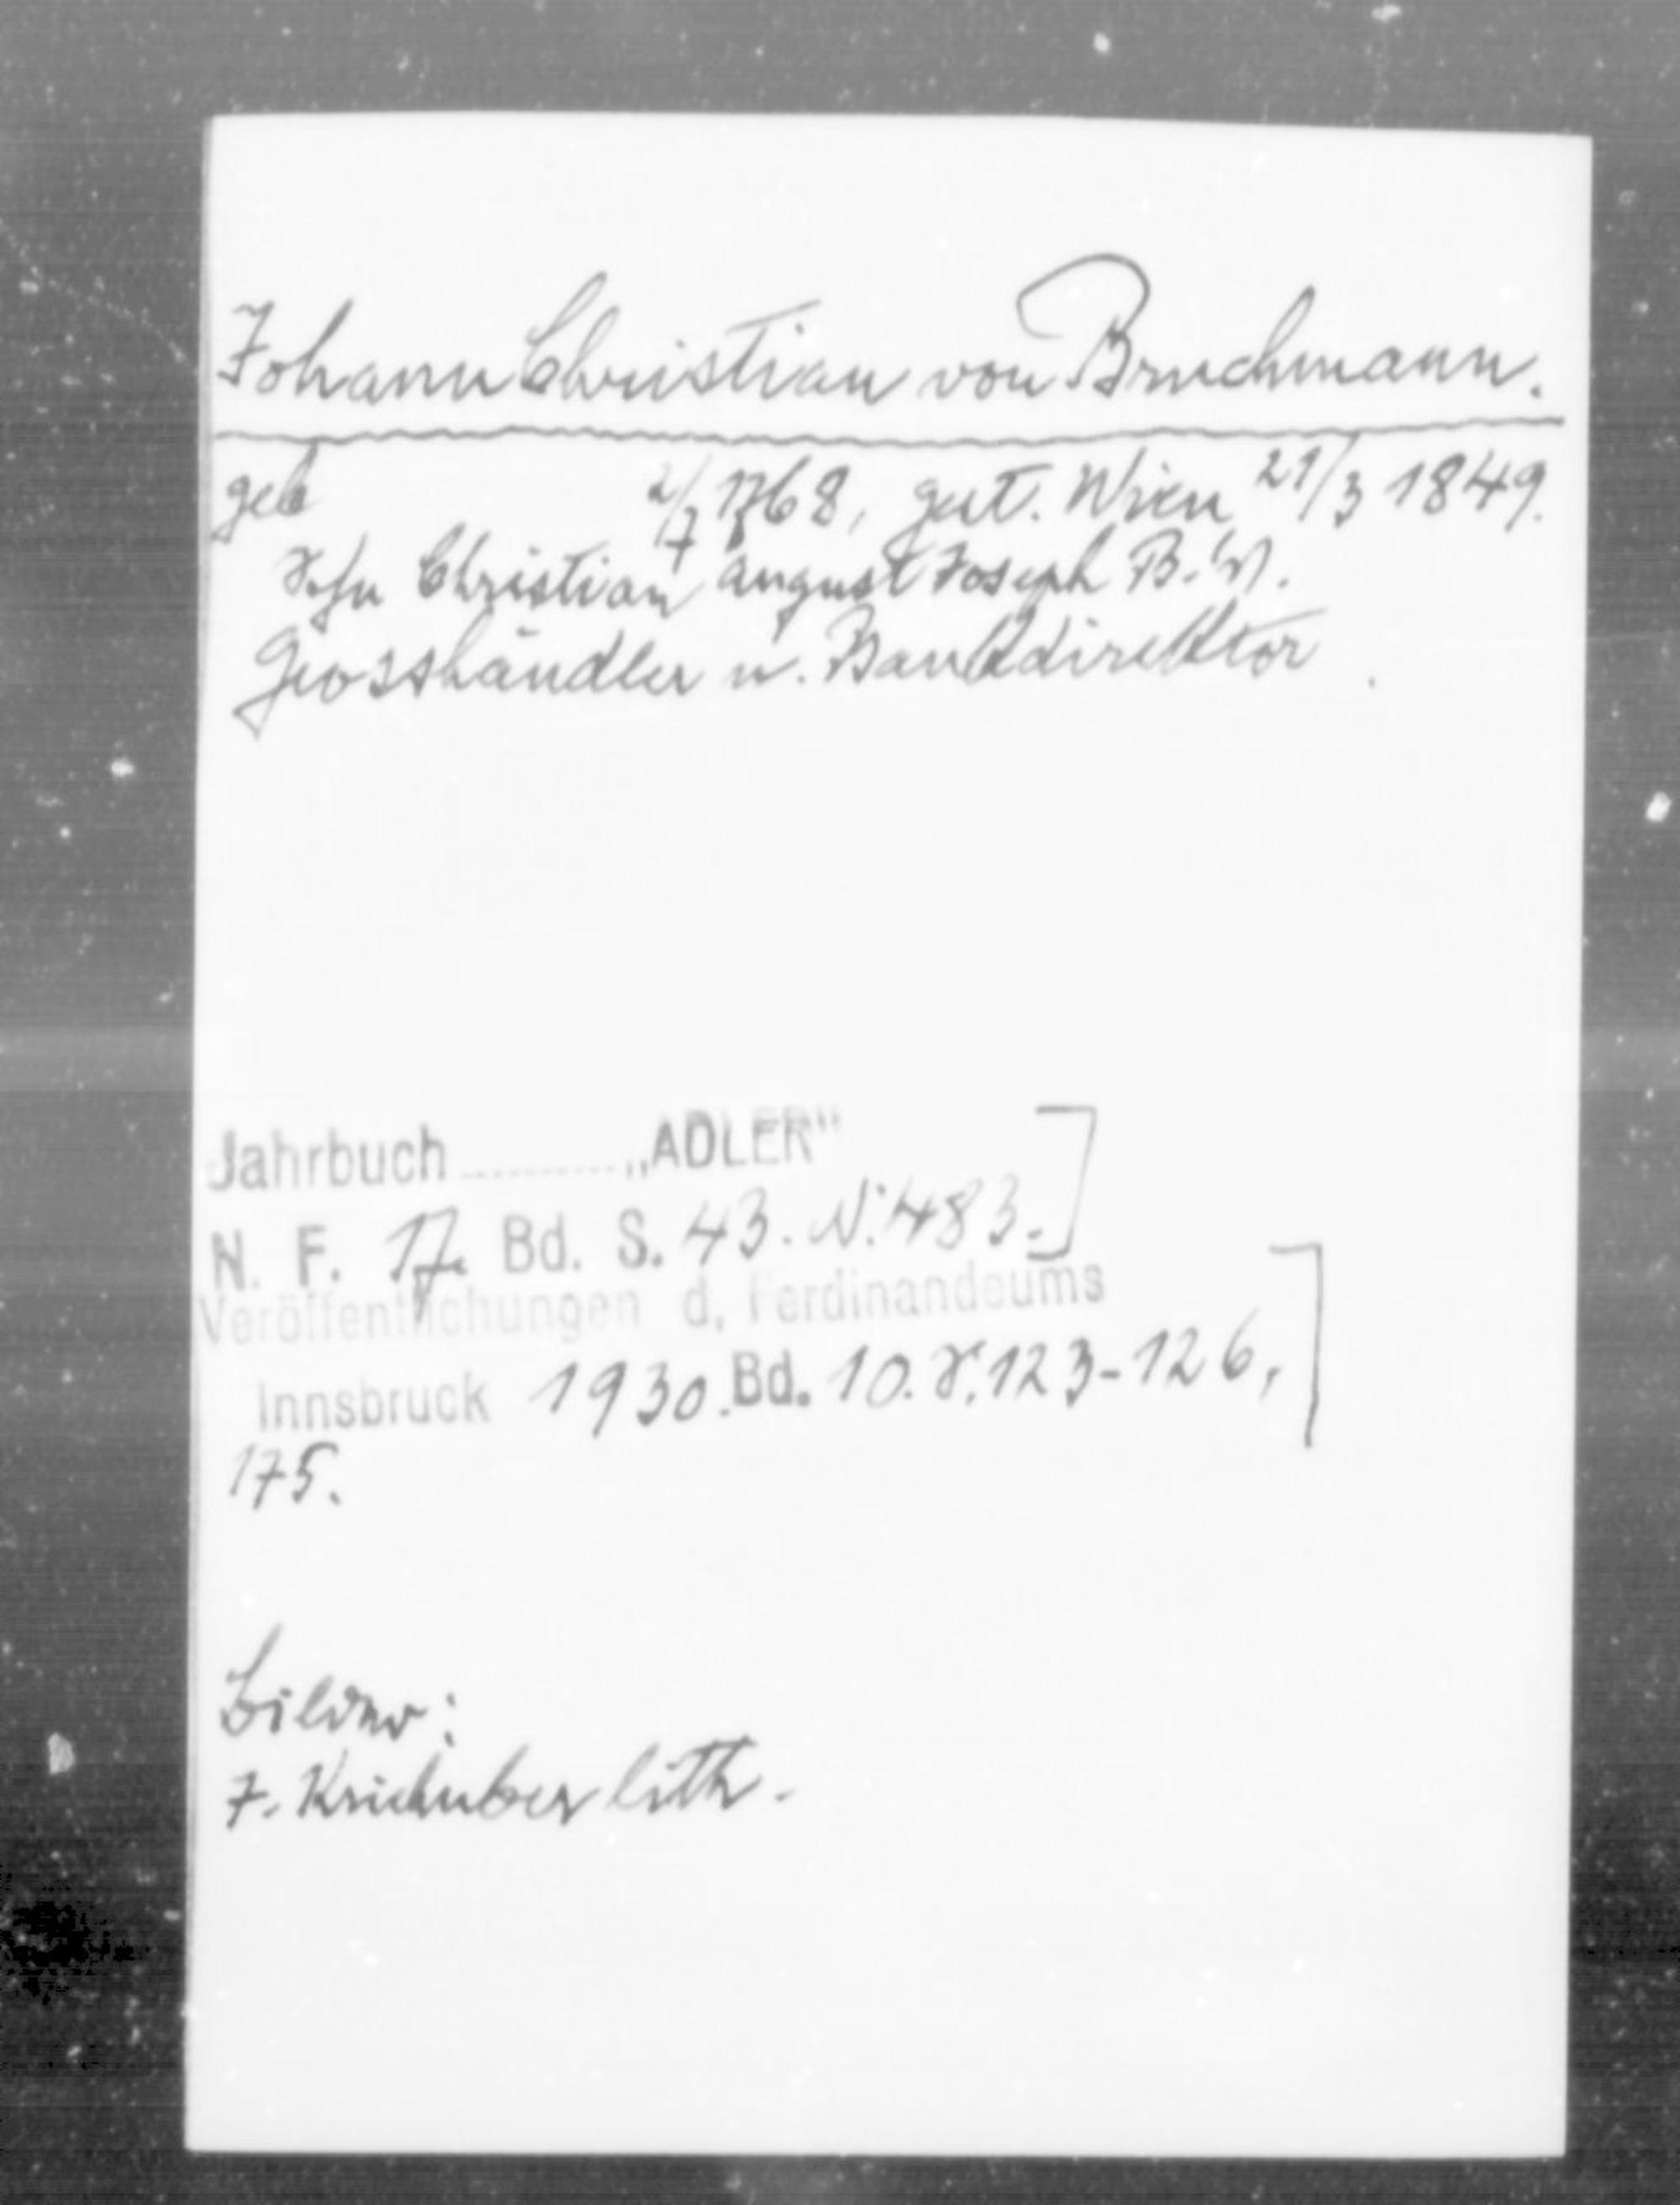 Johann Christian von Bruchmann.
geb 2/7 1768, gest. Wien 21/3 1849.
Sohn Christian August Joseph B.'s.
Grosshändler u. Bankdirektor
Jahrbuch .......... „ADLER“
N. F. 17. Bd. S. 43. N: 483.]
Veröffentlichungen d. Ferdinandeums
Innsbruck 1930. Bd. 10. S. 123-126,]
175.
Bilder:
J. Kriehuber lith.